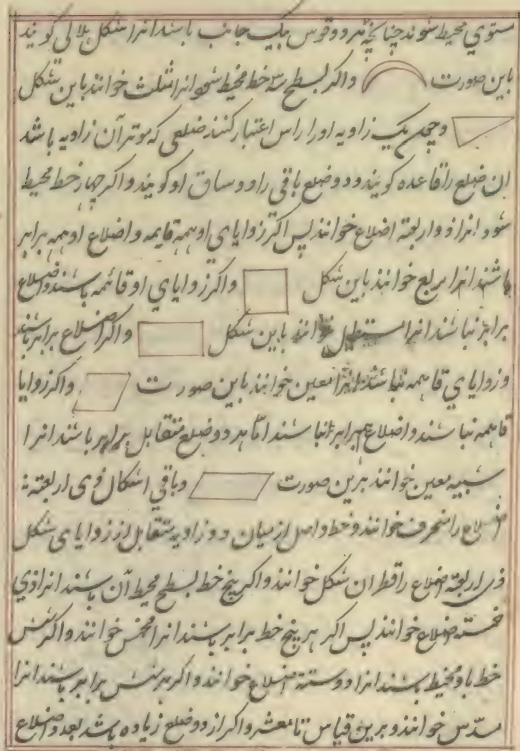 مستوی محیط شوند چنانچه هر دو قوس بیک جانب باشند انرا شکل هلالی کویند
باین صورت واکر بسطح سه خط محیط شود انرا مثلث خوانند باین شکل
وچون یک زاویه اورا راس اعتبار کنند ضلعی که موتر آن زاویه باشد
ان ضلع را قاعده کویند ودو ضلع باقی را دو ساق او کویند واکر چهار خط محیط
شود انرا ذو اربعة اضلاع خوانند پس اکر زوایای او همه قایمه واضلاع او همه برابر
باشند انرا مربع خوانند باین شکل واکر زوایای او قائمه باشند واضلاع
برابر نباشند انرا مستطیل خوانند باین شکل واکر اضلاع برابر باشند
وزوایای قایمه نباشند انرا معین خوانند باین صورت واکر زوایا
قایمه نباشند واضلاع برابر نباشند اما هر دو ضلع متقابل برابر باشند انرا
شبیه معین خوانند برین صورت وباقی اشکال ذی اربعته
اضلاع را منحرف خوانند وخط واصل از میان دو زاویه متقابل از زوایای شکل
ذی اربعته اضلاع را قطر ان شکل خوانند واکر پنج خط بسطح محیط آن باشند انرا ذی
خمسته اضلاع خوانند پس اکر هر پنج خط برابر باشند انرا مخمس خوانند واکر شش
خط باو محیط باشند انرا ذو ستة اضلاع خوانند واکر هر شش برابر باشند انرا
مسدس خوانند وبرین قیاس تا معشر واکر از ده ضلع زیاده باشد بعد واضلاع